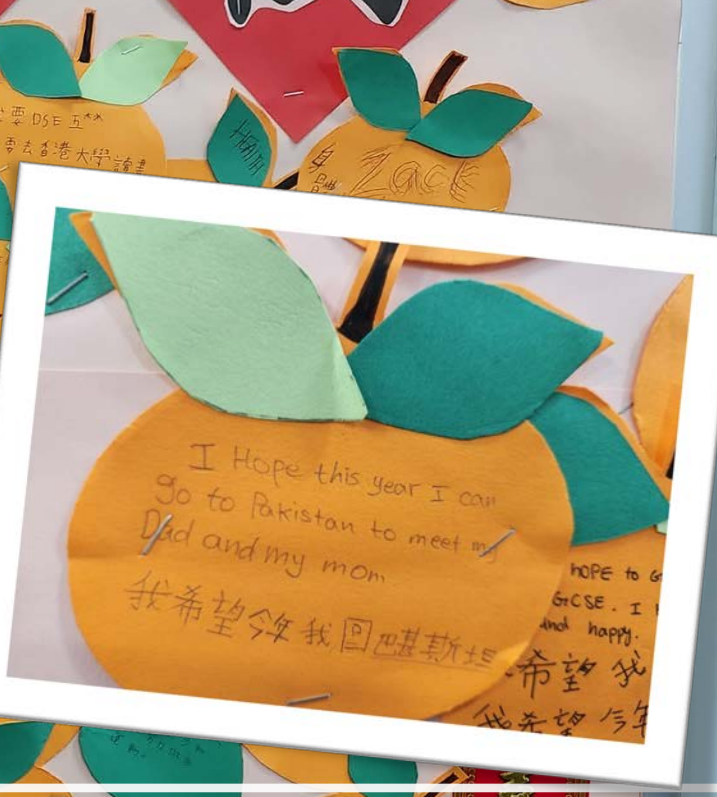 要 DSE 五**
要去香港大學讀書
HEALTH
身
Zack
I Hope this year I can
go to Pakistan to meet my
Dad and my mom
我希望今年我回巴基斯坦
HOPE to G
GCSE. I
and happy.
希望 我
我希望 今年